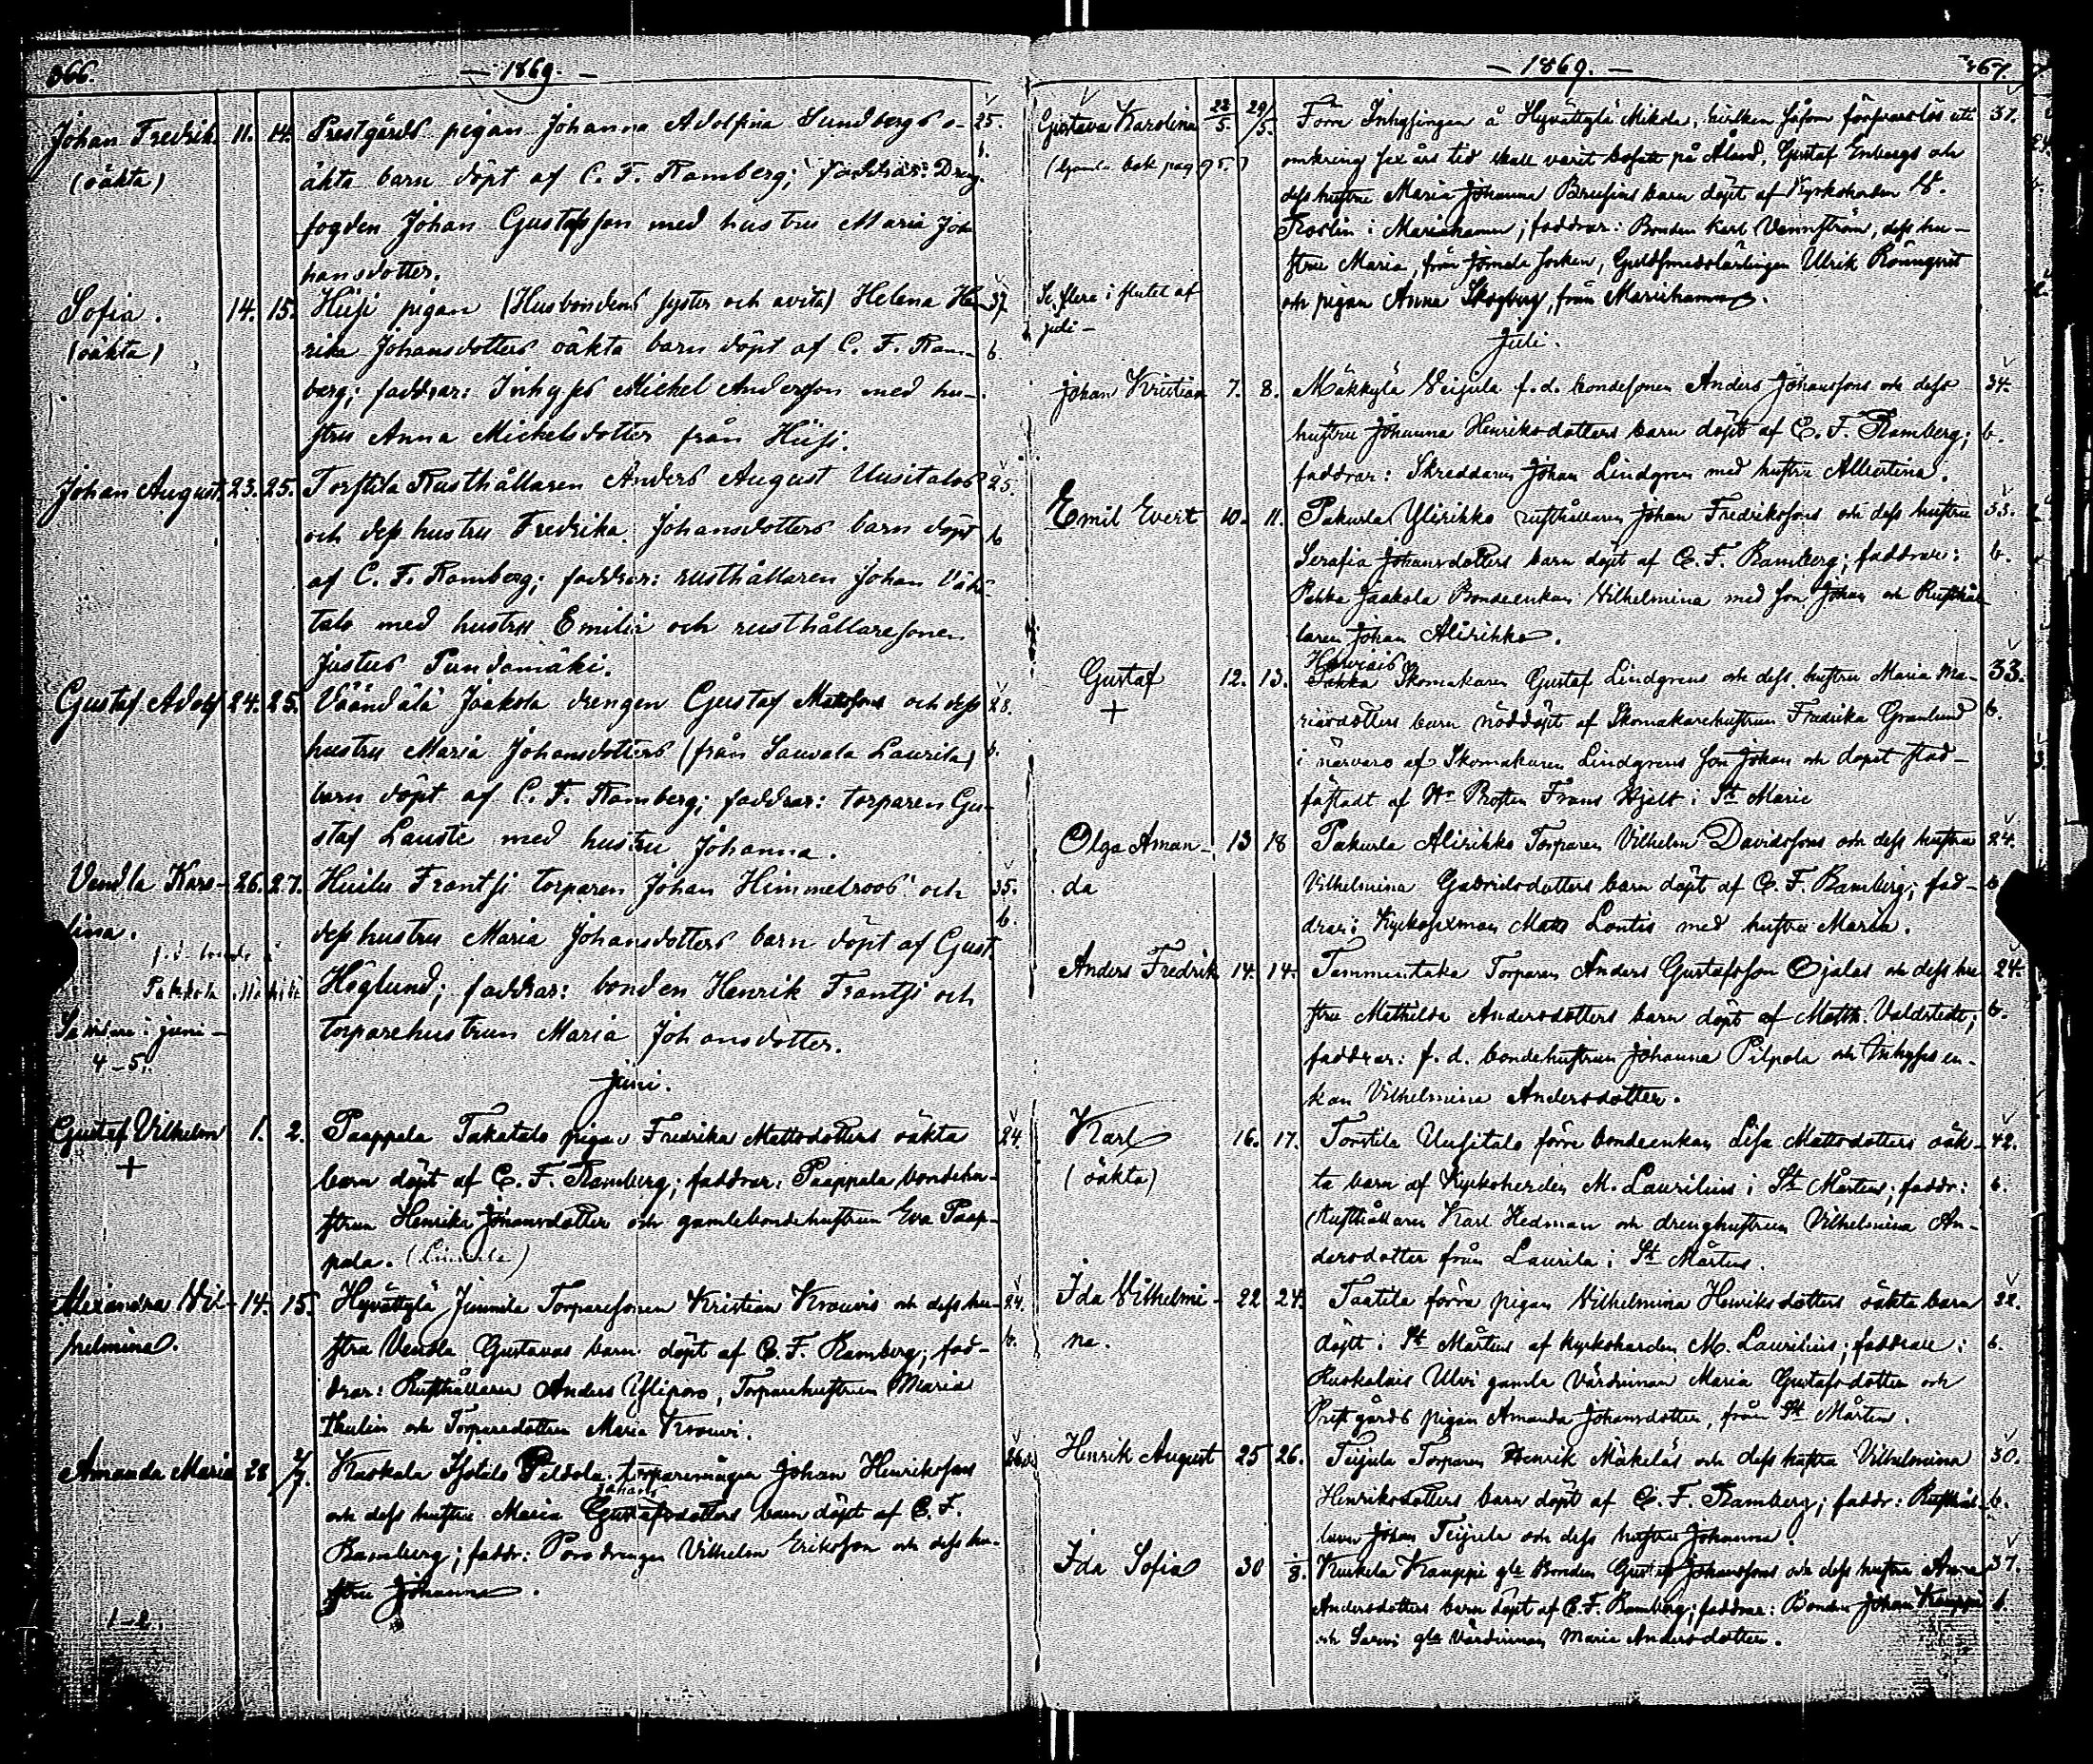 366.
— 1869. —
Johan Fredrik. 11. 14. Prestgårds pigan Johanna Adolfina Sundbergs o- 25.
(oäkta) äkta barn döpt af C. F. Ramberg; faddrar: Dreng- b.
fogden Johan Gustafsson med hustru Maria Jo-
hansdotter.
Sofia. 14. 15. Hiisi pigan (Husbondens syster och avita) Helena Hen- 37.
(oäkta) rika Johansdotters oäkta barn döpt af C. F. Ram- b.
berg; faddrar: Inhyses Michel Andersson med hu-
stru Anna Michelsdotter från Hiisi.
Johan August. 23. 25. Torstila Rusthållaren Anders August Uusitalos 25.
och dess hustru Fredrika Johansdotters barn döpt b
af C. F. Ramberg; faddrar: rusthållaren Johan Vähä-
talo med hustru Emilia och rusthållaresonen
Justus Pundamäki.
Gustaf Adolf 24. 25. Väändälä Jaakola drengen Gustaf Matssons och dess 28.
hustru Maria Johansdotters (från Sauvala Laurila) b.
barn döpt af C. F. Ramberg; faddrar: torparen Gu-
staf Lauste med hustru Johanna.
Vendla Karo- 26. 27. Huilu Frantsi torparen Johan Himmelroos' och 35.
lina. dess hustru Maria Johansdotters barn döpt af Gust. b.
Höglund; faddrar: bonden Henrik Frantsi och
torparehustrun Maria Johansdotter.
i juni —
4–5.
Juni.
Gustaf Vilhelm 1. 2. Paappala Takatalo pigan Fredrika Mattsdotters oäkta 24.
+ barn döpt af C. F. Ramberg; faddrar: Paappala bondehu-
strun Henrika Johansdotter och gamlebondehustrun Eva Paap-
pala.
Alexandra Vil- 14. 15. Hyvättylä Junnila Torparesonen Kristian Krouvis och dess hu- 24.
helmina. stru Vendla Gustavas barn döpt af C. F. Ramberg; fad- b.
drar: Rusthållaren Anders Yliporo, Torparehustrun Maria
Thulin och Torparedottren Maria Krouvi.
Amanda Maria 28 2/7. Kaskala Isotalo Peldola torparemågen Johan Henrikssons
Johans
och dess hustru Maria Gustafsdotters barn döpt af C. F.
Ramberg; faddr: Poro drengen Vilhelm Eriksson och dess hu-
stru Johanna.
1–2.
— 1869. —
367.
Gustava Karolina 22/5. 29/5. Förre Inhysingen å Hyvättylä Mikola, hvilken såsom försvarslös uti 37.
omkring sex års tid skall varit bosatt på Åland, Gustaf Enbergs och
dess hustru Maria Johanna Brusins barn döpt af Kyrkoherden
i Mariehamn; faddrar: Bonden Karl Vennström, dess hu-
stru Maria, från Jomala socken, Guldsmedslärlingen Ulrik Rönnqvist
och pigan Anna Skogberg, från Mariehamn.
Se flere i slutet af
juli —
Juli.
Johan Kristian 7. 8. Mäkkylä Veijula f. d. bondesonen Anders Johanssons och dess 34.
hustru Johanna Henriksdotters barn döpt af C. F. Ramberg; b.
faddrar: Skreddaren Johan Lindgren med hustru Albertina.
Emil Evert 10. 11. Pakurla Ylirikko rusthållaren Johan Fredrikssons och dess hustru 33.
Serafia Johansdotters barn döpt af C. F. Ramberg; faddrar: b.
Pahka Jaakola Bondeenkan Vilhelmina med son Johan och Rusthål-
laren Johan Alirikko.
Gustaf 12. 13. Skomakaren Gustaf Lindgrens och dess hustru Maria Ma- 33.
+ riasdotters barn nöddöpt af Skomakarehustrun Fredrika Granlund b.
i närvaro af Skomakaren Lindgrens son Johan och dopet stad-
fästadt af Hr Prosten Frans Hjelt i St Marie
Olga Aman- 13 18 Pakurla Alirikko Torparen Vilhelm Davidssons och dess hustru 24.
da Vilhelmina Gabrielsdotters barn döpt af C. F. Ramberg; fad- b
drar: Kyrkosexman Matts Lontis med hustru Maria.
Anders Fredrik 14. 14. Tammentaka Torparen Anders Gustafsson Ojalas och dess hu- 24.
stru Mathilda Andersdotters barn döpt af Matth. Valdstedt; b.
faddrar: f. d. bondehustrun Johanna Pilpola och Inhyses en-
kan Vilhelmina Andersdotter.
Karl 16. 17. Torstila Uusitalo förre bondeenkan Lisa Mattsdotters oäk- 42.
(oäkta) ta barn af Kyrkoherden M. Laurilius i St Mårtens; faddr: b.
Rusthållaren Karl Hedman och drenghustrun Vilhelmina An-
dersdotter från Laurila i St Mårtens.
Ida Vilhelmi- 22 24. Taatila förra pigan Vilhelmina Henriksdotters oäkta barn 32.
na. döpt i St Mårtens af kyrkoherden M. Laurilius; faddrar: b.
Ruskalais Ulvi gamla värdinnan Maria Gustafsdotter och
Prestgårds pigan Amanda Johansdotter, från St Mårtens.
Henrik August 25 26. Teijula Torparen Henrik Mäkeläs och dess hustru Vilhelmina 30.
Henriksdotters barn döpt af C. F. Ramberg; faddr: Rusthål- b.
laren Johan Teijula och dess hustru Johanna.
Ida Sofia 30 1/8. Kuukela Kauppi gle Bonden Gustaf Johanssons och dess hustru Anna 37.
Andersdotters barn döpt af C. F. Ramberg; faddrar: Bonden Johan Kauppi b.
och Sarvi gla Värdinnan Maria Andersdotter.